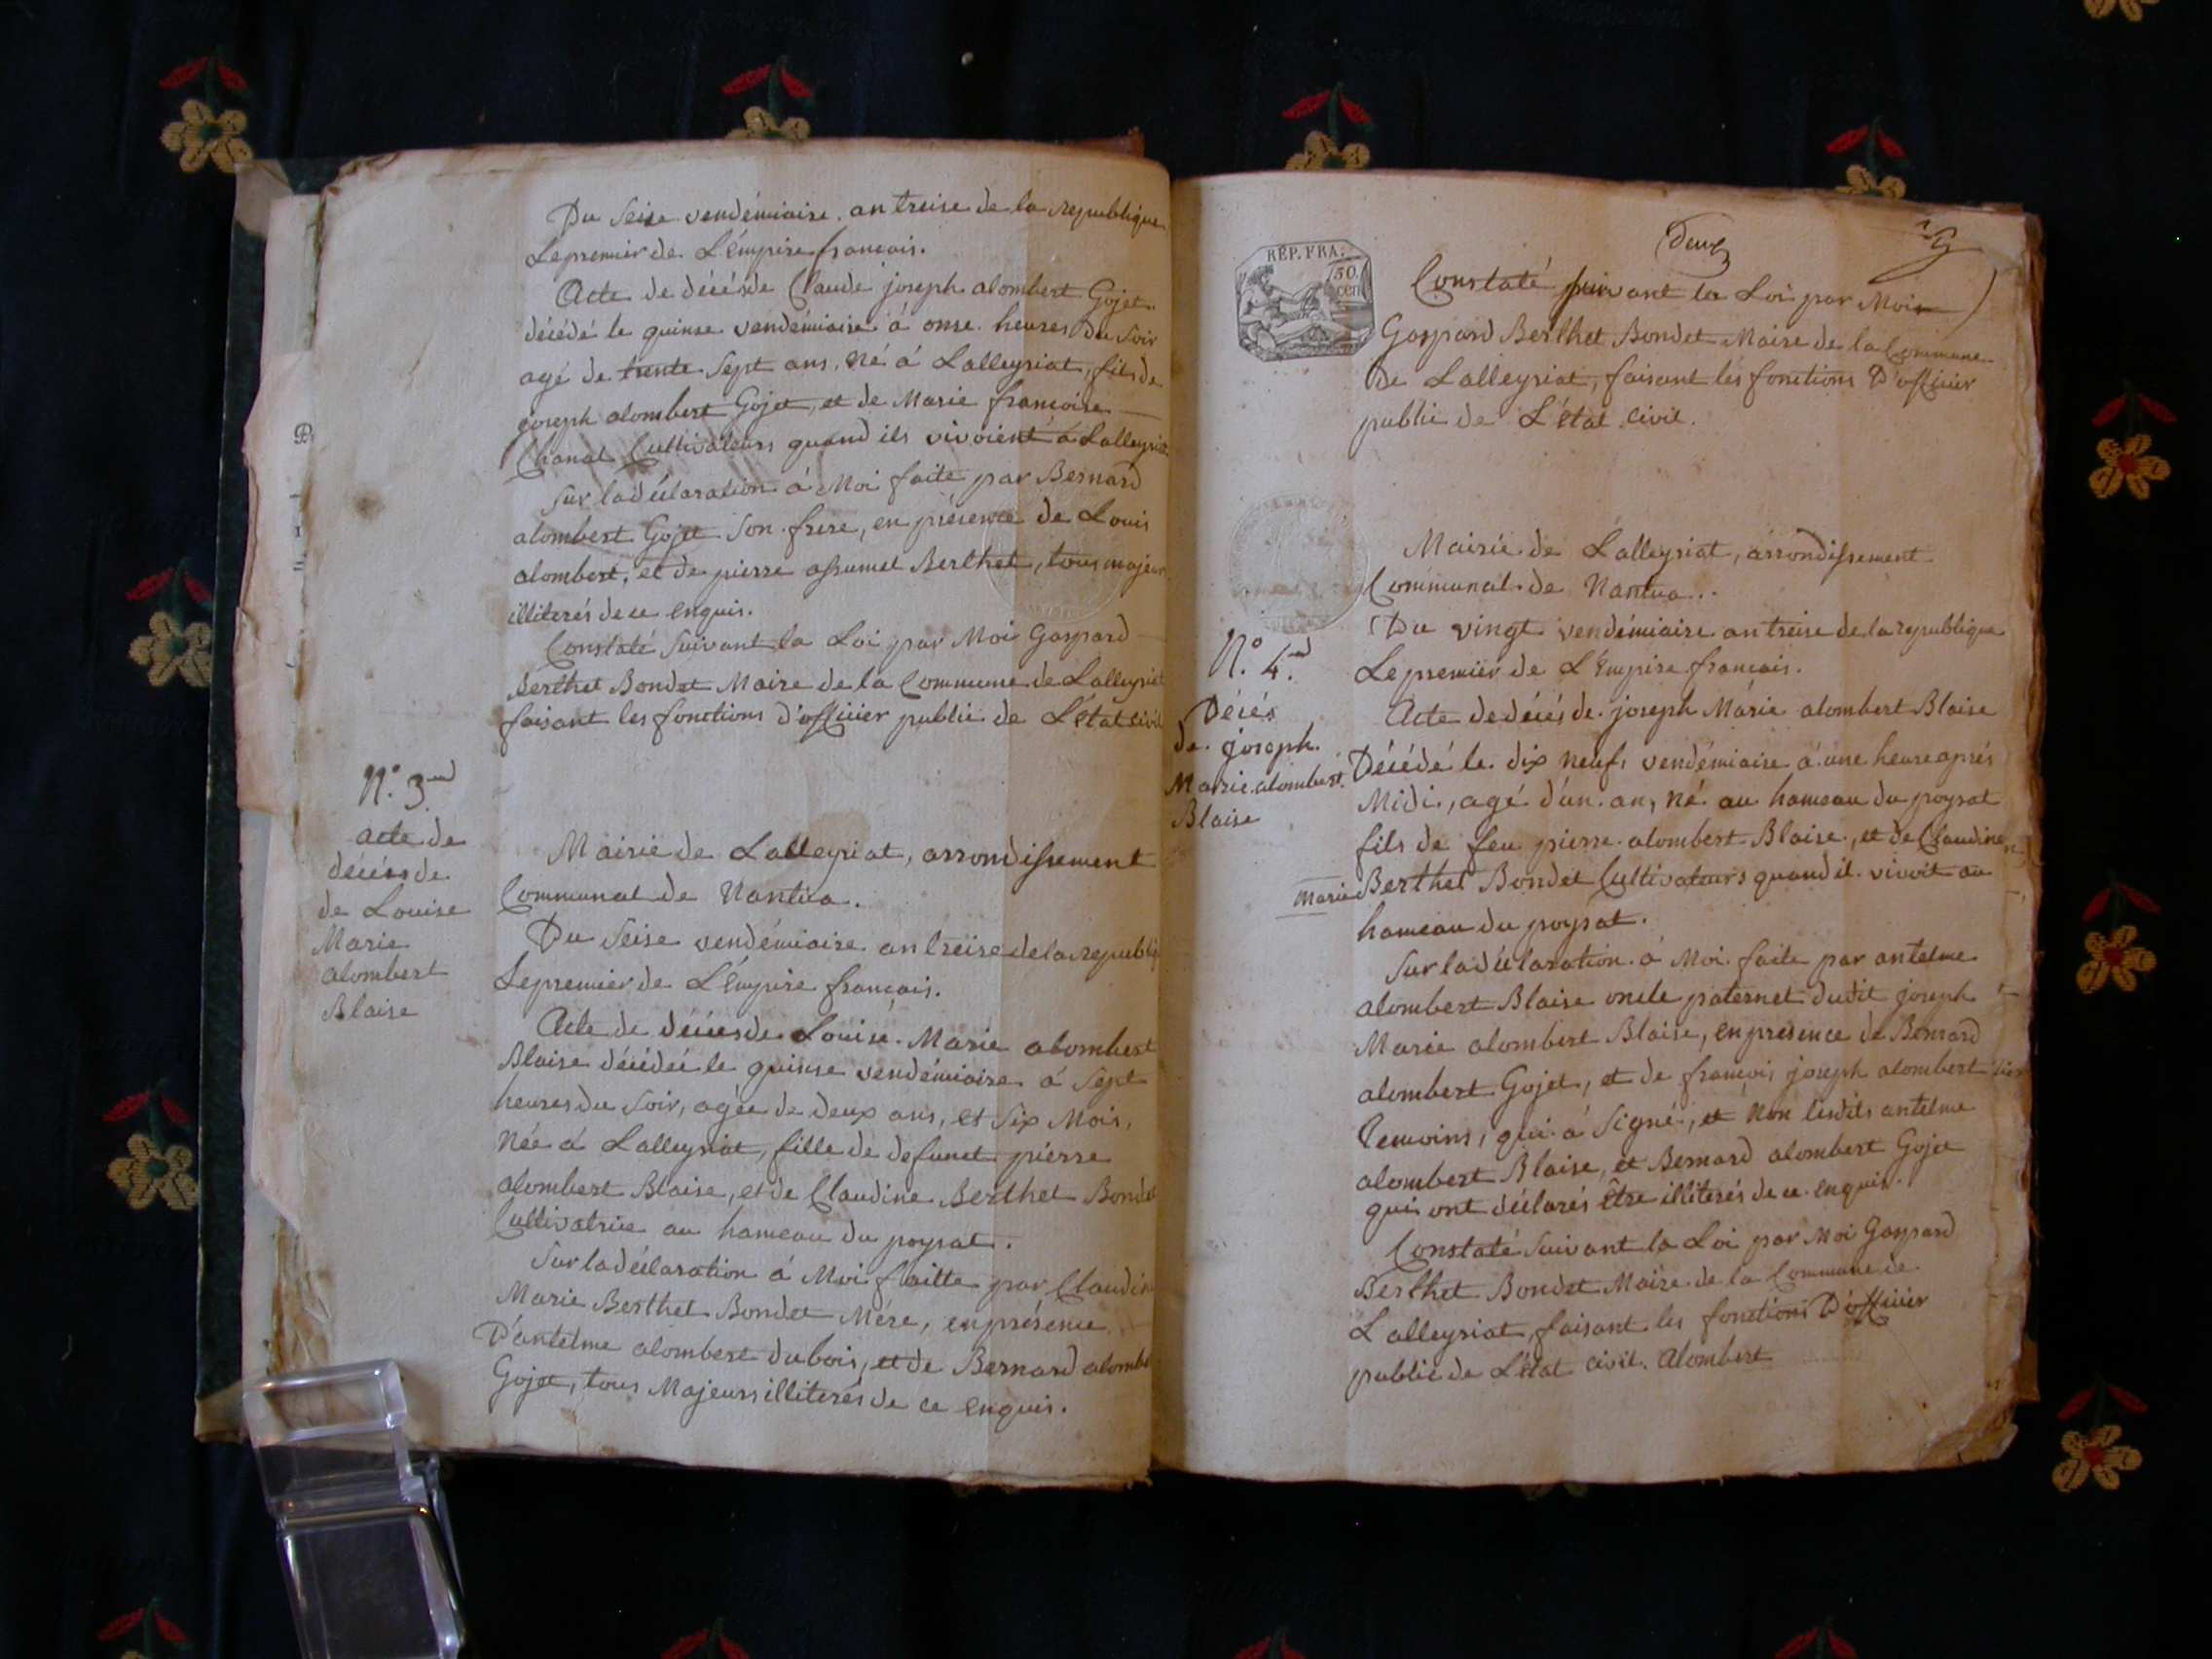 Du Seize vendémiaire an treise de la republique
Le premier de L'émpire francais.
Acte de décésde Claude joseph alombert Gojet
décédé le quinse vendémiaire á onse heures Du Soir
agé de trente Sept ans, Né á Lalleyriat, fils de
joseph alombert Gojet, et de Marie francoise
Chanal Cultivateurs quand ils vivoient á Lalleyriat
Sur la déclaration á Moi faite par Bernard
alombert Gojet Son frere, en présence de Louis
alombert, et de pierre assumel Berthet, tous majeurs
illiterés de ce enquis.
Constaté Suivant la Loi par Moi Gaspard
Berthet Bondet Maire de la Commune de Lalleyriat
faisant les fonctions d'officier public de L'état civil
N.º 3.
acte de
décés de
de Louise
Marie
alombert
Blaise
Mairie de Lalleyriat, arrondissement
Communal de Nantua.
Du Seise vendémiaire an treise de la republiq
Le premier de L'émpire français.
Acte de décesde Louise Marie alombert
Blaise décédée le quinse vendémiaire á Sept
heures du Soir, agée de deux ans, et Six Mois,
Née á Lalleyriat, fille de defunct pierre
alombert Blaise, et de Claudine Berthet Bondet
Cultivatrice au hameau du poysat.
Sur la déclaration á Moi faitte par Claudin
Marie Berthet Bondet Mére, en présence
D'antelme alombert dubois, et de Bernard alombe
Gojet, tous Majeurs illiterés de ce enquis.
deux
RÉP. FRA.
50.
cen
Constaté Suivant la Loi par Moi
Gaspard Berthet Bondet Maire de la Commune
de Lalleyriat, faisant les fonctions D'officier
public de L'état civil.
Mairie de Lalleyriat, arrondissement
Communal de Nantua.
Du vingt vendémiaire an treise de la republique
Le premier de L'Empire francais.
N.º 4.
Décés
de joseph
Marie alombert
Blaise
Acte de décés de joseph Marie alombert Blaise
Décédé le dix neuf vendémiaire á une heure aprés
Midi, agé d'un an, Né au hameau du poysat
fils de feu pierre alombert Blaise, et de Claudine
Marie Berthet Bondet Cultivateurs quand il vivoit au
hameau du poysat.
Sur la déclaration á Moi faite par antelme
alombert Blaise oncle paternel dudit joseph
Marie alombert Blaise, en présence de Bernard
alombert Gojet, et de françois joseph alombert
temoins, qui á Signé, et Non lesdits antelme
alombert Blaise, et Bernard alombert Gojet
qui ont déclarés être illiterés de ce enquis.
Constaté Suivant la Loi par Moi Gaspard
Berthet Bondet Maire de la Commune de
Lalleyriat, faisant les fonctions D'officier
public de L'état civil. Alombert